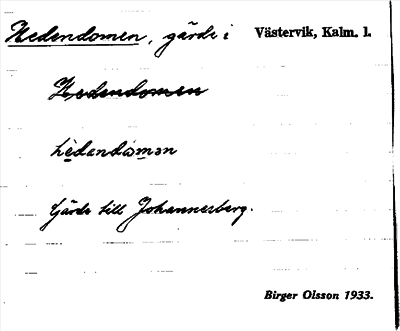 Hedendomen, gärde i Västervik, Kalm. l.
Hedendomen
Gärde till Johannesberg.
Birger Olsson 1933.